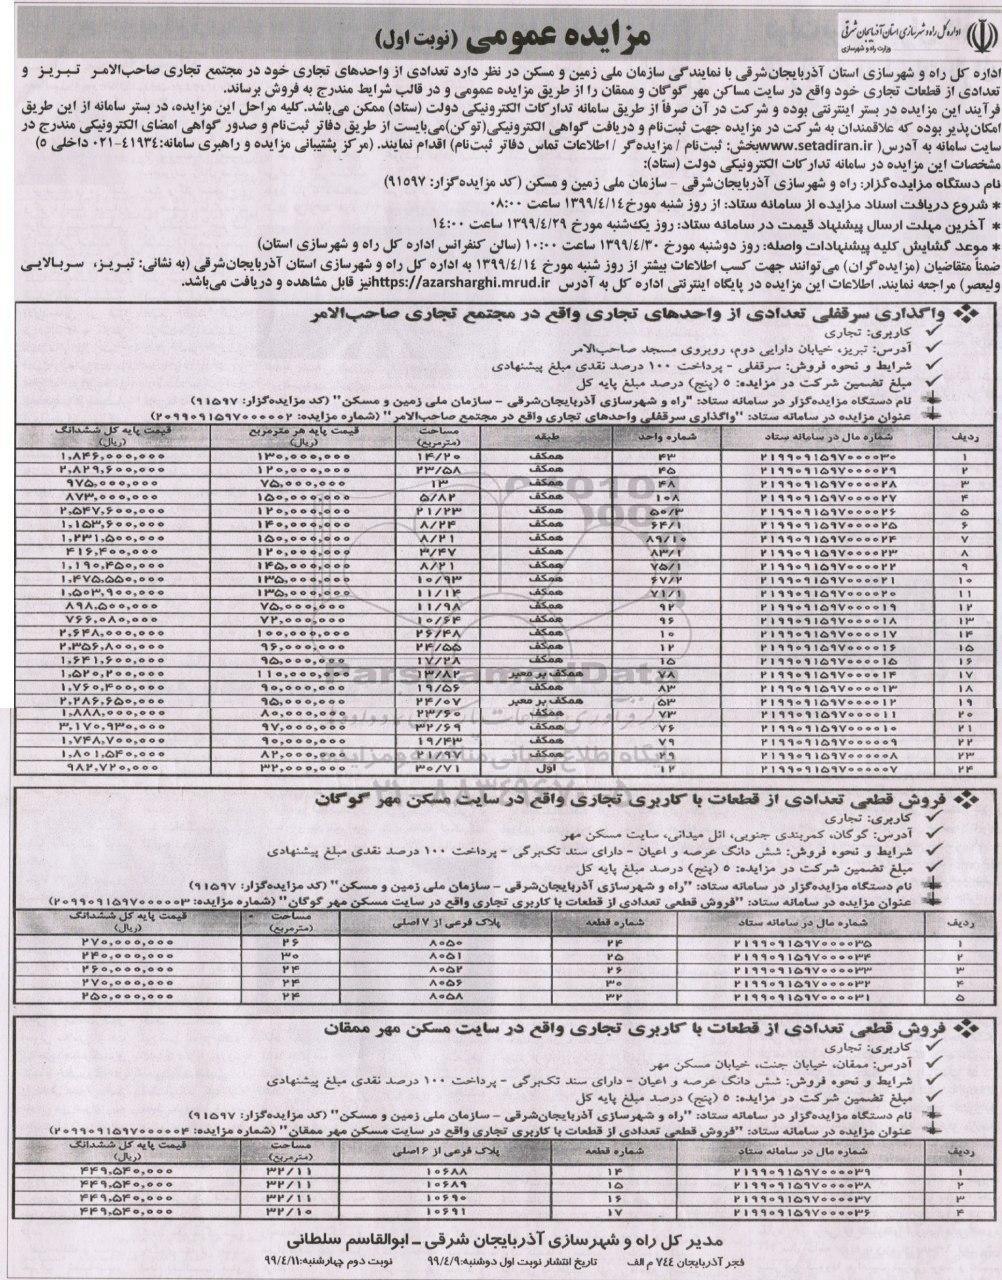 اداره کل راه و شهرسازی استان آذربایجان شرقی
وزارت راه و شهرسازی
مزایده عمومی (نوبت اول)
اداره کل راه و شهرسازی استان آذربایجان‌شرقی با نمایندگی سازمان ملی زمین و مسکن در نظر دارد تعدادی از واحدهای تجاری خود در مجتمع تجاری صاحب‌الامر تبریز و
تعدادی از قطعات تجاری خود واقع در سایت مساکن مهر گوگان و ممقان را از طریق مزایده عمومی و در قالب شرایط مندرج به فروش برساند.
فرآیند این مزایده در بستر اینترنتی بوده و شرکت در آن صرفاً از طریق سامانه تدارکات الکترونیکی دولت (ستاد) ممکن می‌باشد. کلیه مراحل این مزایده، در بستر سامانه از این طریق
امکان‌پذیر بوده که علاقمندان به شرکت در مزایده جهت ثبت‌نام و دریافت گواهی الکترونیکی(توکن)می‌بایست از طریق دفاتر ثبت‌نام و صدور گواهی امضای الکترونیکی مندرج در
سایت سامانه به آدرس( www.setadiran.irبخش: ثبت‌نام / مزایده‌گر / اطلاعات تماس دفاتر ثبت‌نام) اقدام نمایند. (مرکز پشتیبانی مزایده و راهبری سامانه:۴۱۹۳۴-۰۲۱ داخلی ۵)
مشخصات این مزایده در سامانه تدارکات الکترونیکی دولت (ستاد):
نام دستگاه مزایده‌گزار: راه و شهرسازی آذربایجان‌شرقی - سازمان ملی زمین و مسکن (کد مزایده‌گزار: ۹۱۵۹۷)
* شروع دریافت اسناد مزایده از سامانه ستاد: از روز شنبه مورخ۱۳۹۹/۴/۱۴ ساعت ۰۸:۰۰
* آخرین مهلت ارسال پیشنهاد قیمت در سامانه ستاد: روز یک‌شنبه مورخ ۱۳۹۹/۴/۲۹ ساعت ۱۴:۰۰
* موعد گشایش کلیه پیشنهادات واصله: روز دوشنبه مورخ ۱۳۹۹/۴/۳۰ ساعت ۱۰:۰۰ (سالن کنفرانس اداره کل راه و شهرسازی استان)
ضمناً متقاضیان (مزایده‌گران) می‌توانند جهت کسب اطلاعات بیشتر از روز شنبه مورخ ۱۳۹۹/۴/۱۴ به اداره کل راه و شهرسازی استان آذربایجان‌شرقی (به نشانی: تبریز، سربالایی
ولیعصر) مراجعه نمایند. اطلاعات این مزایده در پایگاه اینترنتی اداره کل به آدرس https://azarsharghi.mrud.irنیز قابل مشاهده و دریافت می‌باشد.
❖ واگذاری سرقفلی تعدادی از واحدهای تجاری واقع در مجتمع تجاری صاحب‌الامر
✓ کاربری: تجاری
✓ آدرس: تبریز، خیابان دارایی دوم، روبروی مسجد صاحب‌الامر
✓ شرایط و نحوه فروش: سرقفلی - پرداخت ۱۰۰ درصد نقدی مبلغ پیشنهادی
✓ مبلغ تضمین شرکت در مزایده: ۵ (پنج) درصد مبلغ پایه کل
نام دستگاه مزایده‌گزار در سامانه ستاد: "راه و شهرسازی آذربایجان‌شرقی - سازمان ملی زمین و مسکن" (کد مزایده‌گزار: ۹۱۵۹۷)
عنوان مزایده در سامانه ستاد: "واگذاری سرقفلی واحدهای تجاری واقع در مجتمع صاحب‌الامر" (شماره مزایده: ۲۰۹۹۰۹۱۵۹۷۰۰۰۰۰۲)
ردیف شماره مال در سامانه ستاد شماره واحد طبقه مساحت (مترمربع) قیمت پایه هر مترمربع (ریال) قیمت پایه کل ششدانگ (ریال)
۱ ۲۱۹۹۰۹۱۵۹۷۰۰۰۰۳۰ ۴۳ همکف ۱۴/۲۰ ۱۳۰,۰۰۰,۰۰۰ ۱,۸۴۶,۰۰۰,۰۰۰
۲ ۲۱۹۹۰۹۱۵۹۷۰۰۰۰۲۹ ۴۵ همکف ۲۳/۵۸ ۱۲۰,۰۰۰,۰۰۰ ۲,۸۲۹,۶۰۰,۰۰۰
۳ ۲۱۹۹۰۹۱۵۹۷۰۰۰۰۲۸ ۴۸ همکف ۱۳ ۷۵,۰۰۰,۰۰۰ ۹۷۵,۰۰۰,۰۰۰
۴ ۲۱۹۹۰۹۱۵۹۷۰۰۰۰۲۷ ۱۰۸ همکف ۵/۸۲ ۱۵۰,۰۰۰,۰۰۰ ۸۷۳,۰۰۰,۰۰۰
۵ ۲۱۹۹۰۹۱۵۹۷۰۰۰۰۲۶ ۵۰/۳ همکف ۲۱/۲۳ ۱۲۰,۰۰۰,۰۰۰ ۲,۵۴۷,۶۰۰,۰۰۰
۶ ۲۱۹۹۰۹۱۵۹۷۰۰۰۰۲۵ ۶۴/۱ همکف ۸/۲۴ ۱۴۰,۰۰۰,۰۰۰ ۱,۱۵۳,۶۰۰,۰۰۰
۷ ۲۱۹۹۰۹۱۵۹۷۰۰۰۰۲۴ ۸۹/۱۰ همکف ۸/۲۱ ۱۵۰,۰۰۰,۰۰۰ ۱,۲۳۱,۵۰۰,۰۰۰
۸ ۲۱۹۹۰۹۱۵۹۷۰۰۰۰۲۳ ۸۳/۱ همکف ۳/۴۷ ۱۲۰,۰۰۰,۰۰۰ ۴۱۶,۴۰۰,۰۰۰
۹ ۲۱۹۹۰۹۱۵۹۷۰۰۰۰۲۲ ۷۵/۱ همکف ۸/۲۱ ۱۴۵,۰۰۰,۰۰۰ ۱,۱۹۰,۴۵۰,۰۰۰
۱۰ ۲۱۹۹۰۹۱۵۹۷۰۰۰۰۲۱ ۶۷/۲ همکف ۱۰/۹۳ ۱۳۵,۰۰۰,۰۰۰ ۱,۴۷۵,۵۵۰,۰۰۰
۱۱ ۲۱۹۹۰۹۱۵۹۷۰۰۰۰۲۰ ۷۱/۱ همکف ۱۱/۱۴ ۱۳۵,۰۰۰,۰۰۰ ۱,۵۰۳,۹۰۰,۰۰۰
۱۲ ۲۱۹۹۰۹۱۵۹۷۰۰۰۰۱۹ ۹۲ همکف ۱۱/۹۸ ۷۵,۰۰۰,۰۰۰ ۸۹۸,۵۰۰,۰۰۰
۱۳ ۲۱۹۹۰۹۱۵۹۷۰۰۰۰۱۸ ۹۶ همکف ۱۰/۶۴ ۷۲,۰۰۰,۰۰۰ ۷۶۶,۰۸۰,۰۰۰
۱۴ ۲۱۹۹۰۹۱۵۹۷۰۰۰۰۱۷ ۱۰ همکف ۲۶/۴۸ ۱۰۰,۰۰۰,۰۰۰ ۲,۶۴۸,۰۰۰,۰۰۰
۱۵ ۲۱۹۹۰۹۱۵۹۷۰۰۰۰۱۶ ۱۲ همکف ۲۴/۵۵ ۹۶,۰۰۰,۰۰۰ ۲,۳۵۶,۸۰۰,۰۰۰
۱۶ ۲۱۹۹۰۹۱۵۹۷۰۰۰۰۱۵ ۱۵ همکف ۱۷/۲۸ ۹۵,۰۰۰,۰۰۰ ۱,۶۴۱,۶۰۰,۰۰۰
۱۷ ۲۱۹۹۰۹۱۵۹۷۰۰۰۰۱۴ ۷۸ همکف بر معبر ۱۳/۸۲ ۱۱۰,۰۰۰,۰۰۰ ۱,۵۲۰,۲۰۰,۰۰۰
۱۸ ۲۱۹۹۰۹۱۵۹۷۰۰۰۰۱۳ ۸۳ همکف ۱۹/۵۶ ۹۰,۰۰۰,۰۰۰ ۱,۷۶۰,۴۰۰,۰۰۰
۱۹ ۲۱۹۹۰۹۱۵۹۷۰۰۰۰۱۲ ۵۳ همکف بر معبر ۲۴/۰۷ ۹۵,۰۰۰,۰۰۰ ۲,۲۸۶,۶۵۰,۰۰۰
۲۰ ۲۱۹۹۰۹۱۵۹۷۰۰۰۰۱۱ ۷۳ همکف ۲۳/۶۰ ۸۰,۰۰۰,۰۰۰ ۱,۸۸۸,۰۰۰,۰۰۰
۲۱ ۲۱۹۹۰۹۱۵۹۷۰۰۰۰۱۰ ۷۶ همکف ۳۲/۶۹ ۹۷,۰۰۰,۰۰۰ ۳,۱۷۰,۹۳۰,۰۰۰
۲۲ ۲۱۹۹۰۹۱۵۹۷۰۰۰۰۰۹ ۷۹ همکف ۱۹/۴۳ ۹۰,۰۰۰,۰۰۰ ۱,۷۴۸,۷۰۰,۰۰۰
۲۳ ۲۱۹۹۰۹۱۵۹۷۰۰۰۰۰۸ ۲۹ همکف ۲۱/۹۷ ۸۲,۰۰۰,۰۰۰ ۱,۸۰۱,۵۴۰,۰۰۰
۲۴ ۲۱۹۹۰۹۱۵۹۷۰۰۰۰۰۷ ۱۲ اول ۳۰/۷۱ ۳۲,۰۰۰,۰۰۰ ۹۸۲,۷۲۰,۰۰۰
❖ فروش قطعی تعدادی از قطعات با کاربری تجاری واقع در سایت مسکن مهر گوگان
✓ کاربری: تجاری
✓ آدرس: گوگان، کمربندی جنوبی، ائل میدانی، سایت مسکن مهر
✓ شرایط و نحوه فروش: شش دانگ عرصه و اعیان - دارای سند تک‌برگی - پرداخت ۱۰۰ درصد نقدی مبلغ پیشنهادی
✓ مبلغ تضمین شرکت در مزایده: ۵ (پنج) درصد مبلغ پایه کل
نام دستگاه مزایده‌گزار در سامانه ستاد: "راه و شهرسازی آذربایجان‌شرقی - سازمان ملی زمین و مسکن" (کد مزایده‌گزار: ۹۱۵۹۷)
عنوان مزایده در سامانه ستاد: "فروش قطعی تعدادی از قطعات با کاربری تجاری واقع در سایت مسکن مهر گوگان" (شماره مزایده: ۲۰۹۹۰۹۱۵۹۷۰۰۰۰۰۳)
ردیف شماره مال در سامانه ستاد شماره قطعه پلاک فرعی از ۷ اصلی مساحت (مترمربع) قیمت پایه کل ششدانگ (ریال)
۱ ۲۱۹۹۰۹۱۵۹۷۰۰۰۰۳۵ ۲۴ ۸۰۵۰ ۲۶ ۲۷۰,۰۰۰,۰۰۰
۲ ۲۱۹۹۰۹۱۵۹۷۰۰۰۰۳۴ ۲۵ ۸۰۵۱ ۳۰ ۲۴۰,۰۰۰,۰۰۰
۳ ۲۱۹۹۰۹۱۵۹۷۰۰۰۰۳۳ ۲۶ ۸۰۵۲ ۲۴ ۲۶۰,۰۰۰,۰۰۰
۴ ۲۱۹۹۰۹۱۵۹۷۰۰۰۰۳۲ ۳۰ ۸۰۵۶ ۲۴ ۲۷۰,۰۰۰,۰۰۰
۵ ۲۱۹۹۰۹۱۵۹۷۰۰۰۰۳۱ ۳۲ ۸۰۵۸ ۲۴ ۲۵۰,۰۰۰,۰۰۰
❖ فروش قطعی تعدادی از قطعات با کاربری تجاری واقع در سایت مسکن مهر ممقان
✓ کاربری: تجاری
✓ آدرس: ممقان، خیابان جنت، خیابان مسکن مهر
✓ شرایط و نحوه فروش: شش دانگ عرصه و اعیان - دارای سند تک‌برگی - پرداخت ۱۰۰ درصد نقدی مبلغ پیشنهادی
✓ مبلغ تضمین شرکت در مزایده: ۵ (پنج) درصد مبلغ پایه کل
نام دستگاه مزایده‌گزار در سامانه ستاد: "راه و شهرسازی آذربایجان‌شرقی - سازمان ملی زمین و مسکن" (کد مزایده‌گزار: ۹۱۵۹۷)
عنوان مزایده در سامانه ستاد: "فروش قطعی تعدادی از قطعات با کاربری تجاری واقع در سایت مسکن مهر ممقان" (شماره مزایده: ۲۰۹۹۰۹۱۵۹۷۰۰۰۰۰۴)
ردیف شماره مال در سامانه ستاد شماره قطعه پلاک فرعی از ۶ اصلی مساحت (مترمربع) قیمت پایه کل ششدانگ (ریال)
۱ ۲۱۹۹۰۹۱۵۹۷۰۰۰۰۳۹ ۱۴ ۱۰۶۸۸ ۳۲/۱۱ ۴۴۹,۵۴۰,۰۰۰
۲ ۲۱۹۹۰۹۱۵۹۷۰۰۰۰۳۸ ۱۵ ۱۰۶۸۹ ۳۲/۱۱ ۴۴۹,۵۴۰,۰۰۰
۳ ۲۱۹۹۰۹۱۵۹۷۰۰۰۰۳۷ ۱۶ ۱۰۶۹۰ ۳۲/۱۱ ۴۴۹,۵۴۰,۰۰۰
۴ ۲۱۹۹۰۹۱۵۹۷۰۰۰۰۳۶ ۱۷ ۱۰۶۹۱ ۳۲/۱۰ ۴۴۹,۵۴۰,۰۰۰
مدیر کل راه و شهرسازی آذربایجان شرقی - ابوالقاسم سلطانی
فجر آذربایجان ۷۴۴ م الف تاریخ انتشار نوبت اول دوشنبه: ۹۹/۴/۹ نوبت دوم چهارشنبه: ۹۹/۴/۱۱